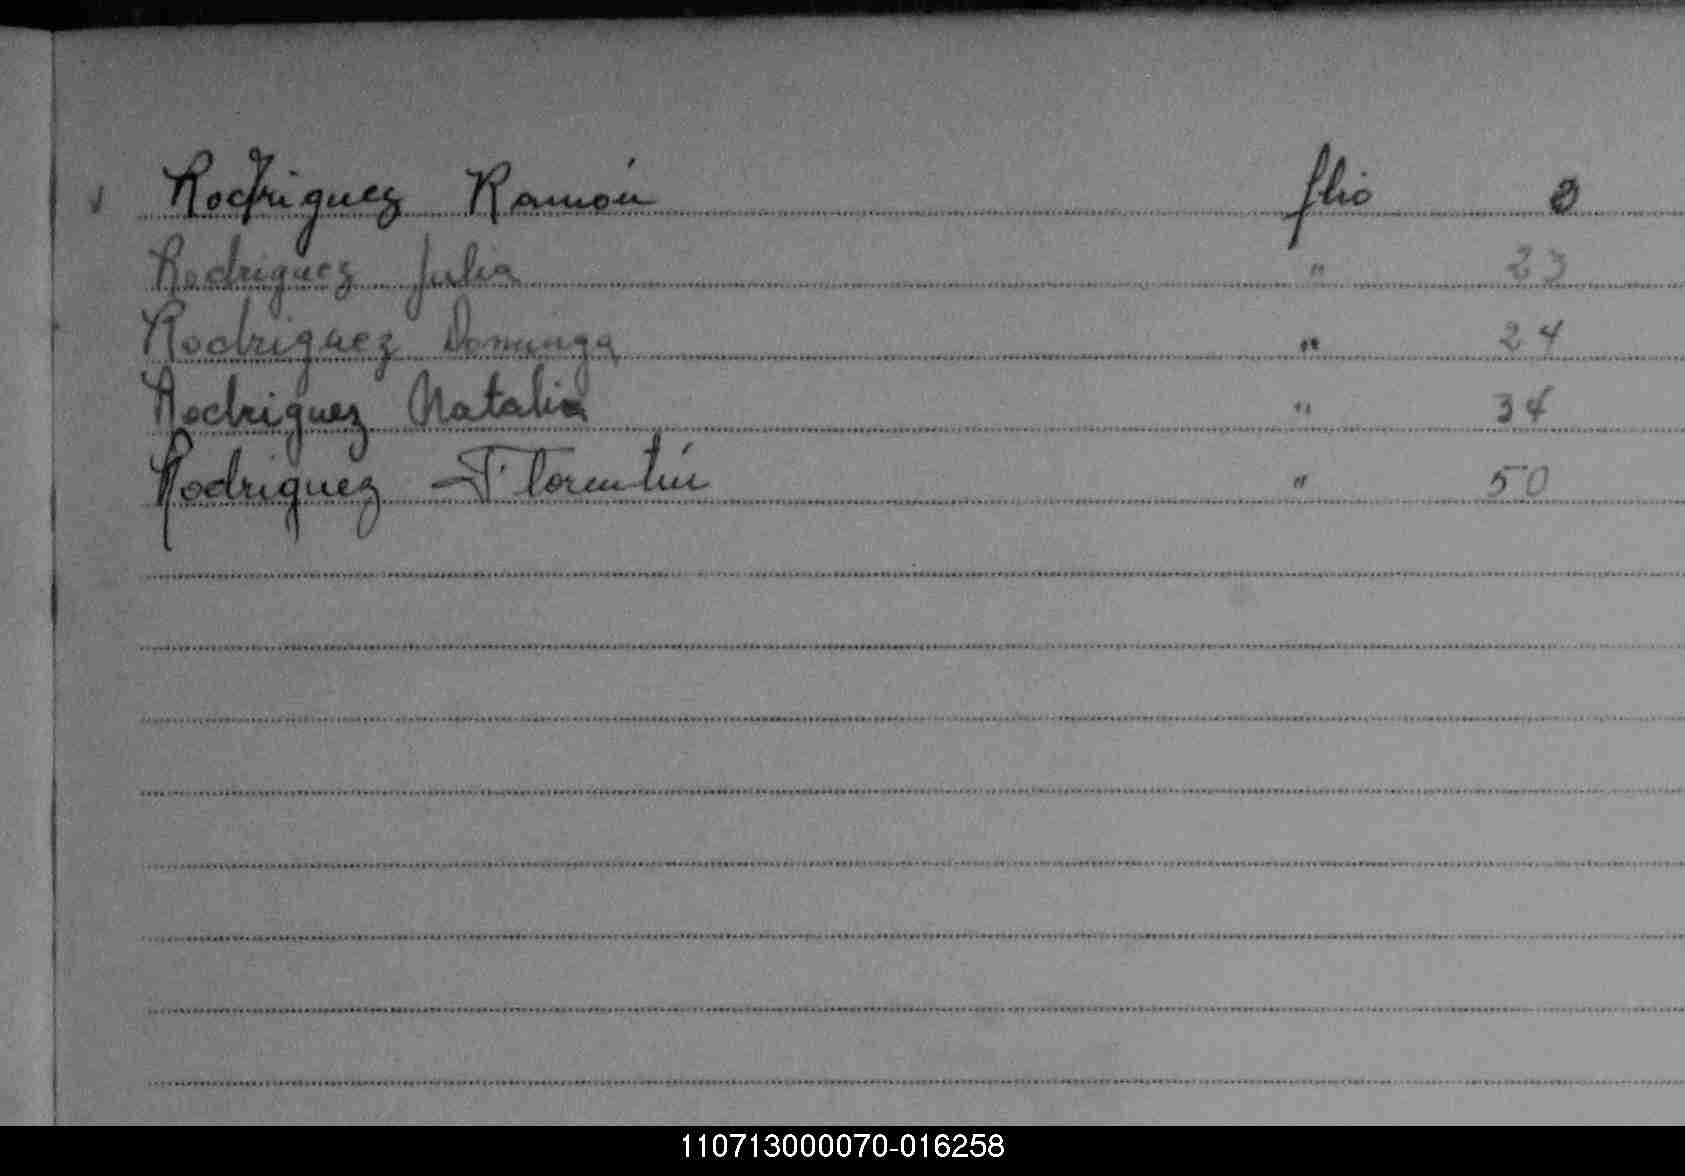 Rodriguez Ramón flio
Rodriguez Julia " 23
Rodriguez Dominga " 24
Rodriguez Natalia " 34
Rodriguez Florentín " 50
110713000070-016258